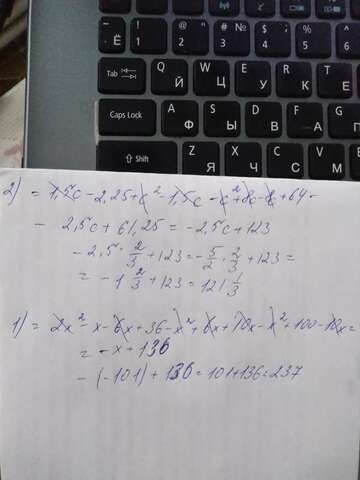 Ё
1
2
3
4
5
6
Tab
Й
Ц
У
К
Е
Caps Lock
Ф
Ы
В
А
П
Shift
Я
Ч
С
М
И
2) = 1,5c - 2,25 + c² - 1,5c - c² + 8c - 8c + 64 -
- 2,5c + 61,25 = -2,5c + 123
-2,5 · 2/3 + 123 = -5/2 · 2/3 + 123 =
= -1 2/3 + 123 = 121 1/3
1) = 2x² - x - 6x + 36 - x² + 6x + 10x - x² + 100 - 10x =
= -x + 136
- (-101) + 136 = 101 + 136 = 237